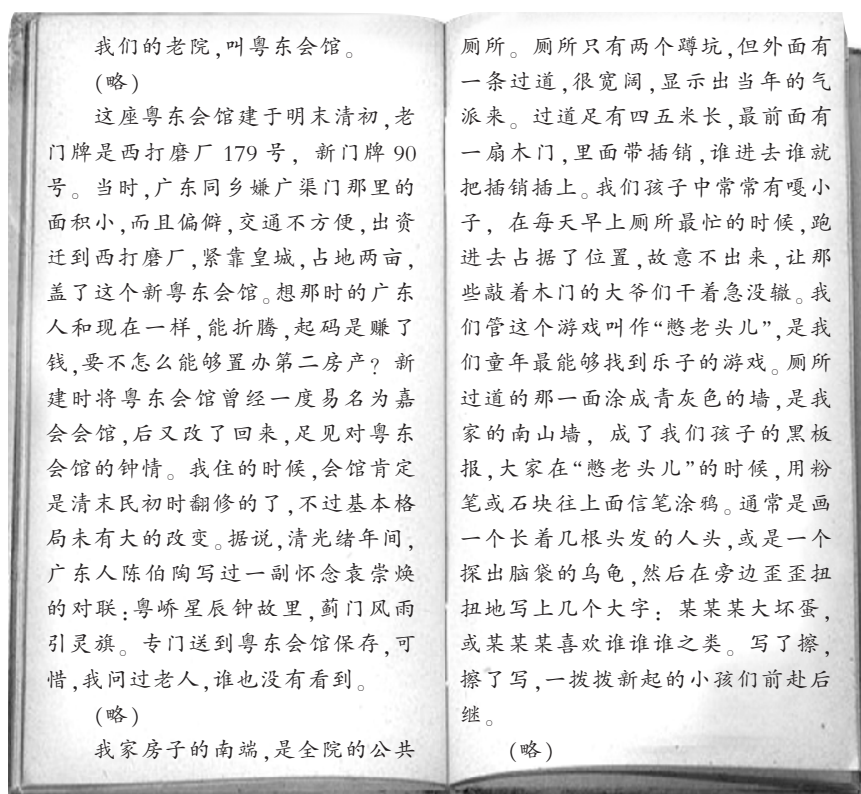 我们的老院,叫粤东会馆。
(略)
这座粤东会馆建于明末清初,老
门牌是西打磨厂 179 号, 新门牌 90
号。当时,广东同乡嫌广渠门那里的
面积小,而且偏僻,交通不方便,出资
迁到西打磨厂,紧靠皇城,占地两亩,
盖了这个新粤东会馆。想那时的广东
人和现在一样,能折腾,起码是赚了
钱,要不怎么能够置办第二房产? 新
建时将粤东会馆曾经一度易名为嘉
会会馆,后又改了回来,足见对粤东
会馆的钟情。我住的时候,会馆肯定
是清末民初时翻修的了,不过基本格
局未有大的改变。据说,清光绪年间,
广东人陈伯陶写过一副怀念袁崇焕
的对联:粤峤星辰钟故里,蓟门风雨
引灵旗。专门送到粤东会馆保存,可
惜,我问过老人,谁也没有看到。
(略)
我家房子的南端,是全院的公共
厕所。厕所只有两个蹲坑,但外面有
一条过道,很宽阔,显示出当年的气
派来。过道足有四五米长,最前面有
一扇木门,里面带插销,谁进去谁就
把插销插上。我们孩子中常常有嘎小
子, 在每天早上厕所最忙的时候,跑
进去占据了位置,故意不出来,让那
些敲着木门的大爷们干着急没辙。我
们管这个游戏叫作“憋老头儿”,是我
们童年最能够找到乐子的游戏。厕所
过道的那一面涂成青灰色的墙,是我
家的南山墙, 成了我们孩子的黑板
报,大家在“憋老头儿”的时候,用粉
笔或石块往上面信笔涂鸦。通常是画
一个长着几根头发的人头,或是一个
探出脑袋的乌龟,然后在旁边歪歪扭
扭地写上几个大字: 某某某大坏蛋,
或某某某喜欢谁谁谁之类。写了擦,
擦了写,一拨拨新起的小孩们前赴后
继。
(略)